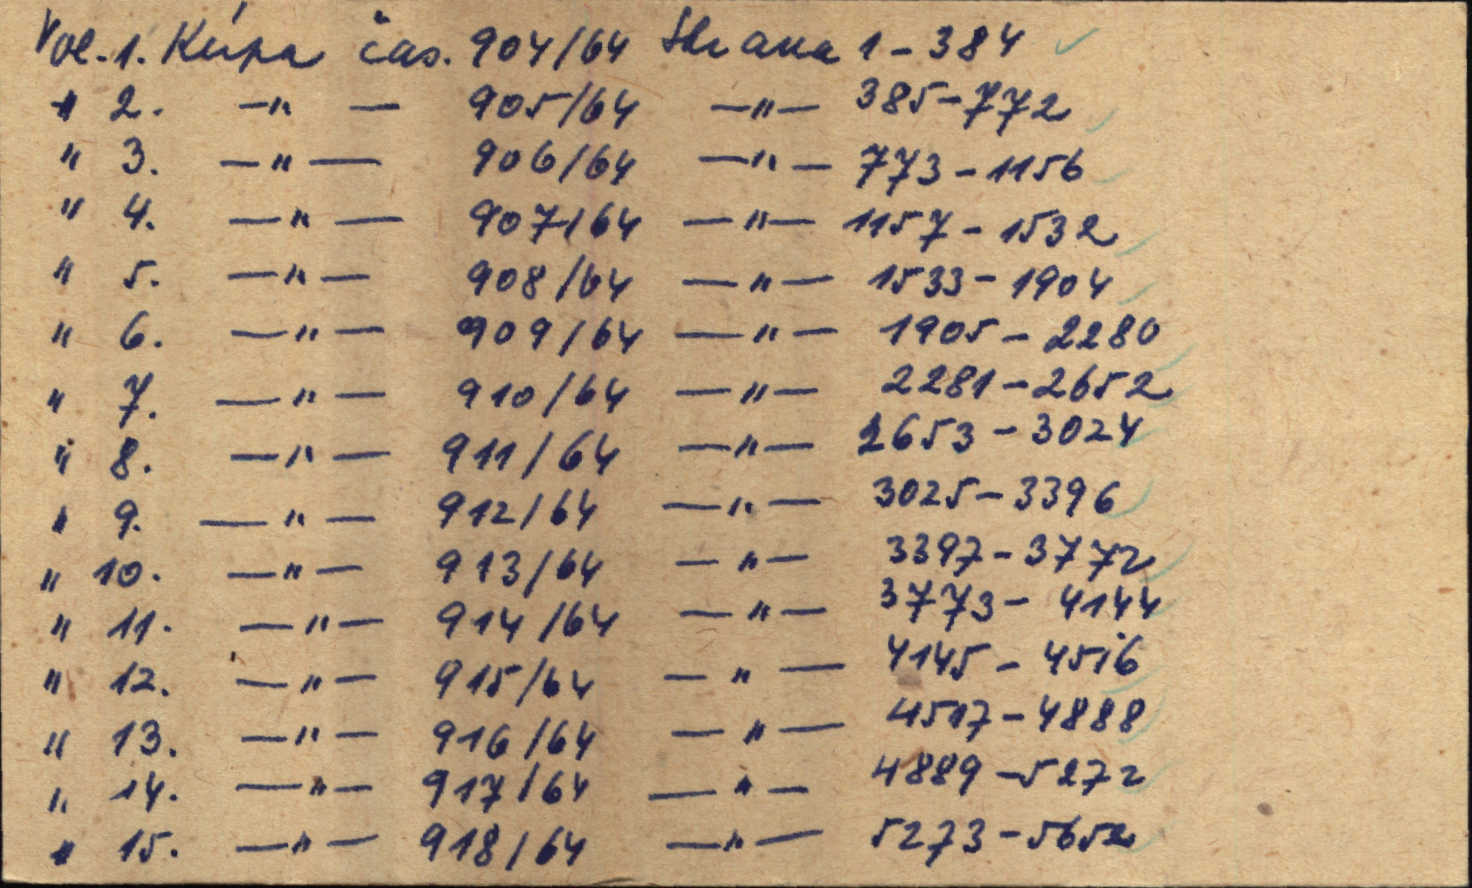 Vol. 1. Kúpa čas. 904/64 Strana 1-384
" 2. -"- 905/64 -"- 385-772
" 3. -"- 906/64 -"- 773-1156
" 4. -"- 907/64 -"- 1157-1532
" 5. -"- 908/64 -"- 1533-1904
" 6. -"- 909/64 -"- 1905-2280
" 7. -"- 910/64 -"- 2281-2652
" 8. -"- 911/64 -"- 2653-3024
" 9. -"- 912/64 -"- 3025-3396
" 10. -"- 913/64 -"- 3397-3772
" 11. -"- 914/64 -"- 3773-4144
" 12. -"- 915/64 -"- 4145-4516
" 13. -"- 916/64 -"- 4517-4888
" 14. -"- 917/64 -"- 4889-5272
" 15. -"- 918/64 -"- 5273-5652